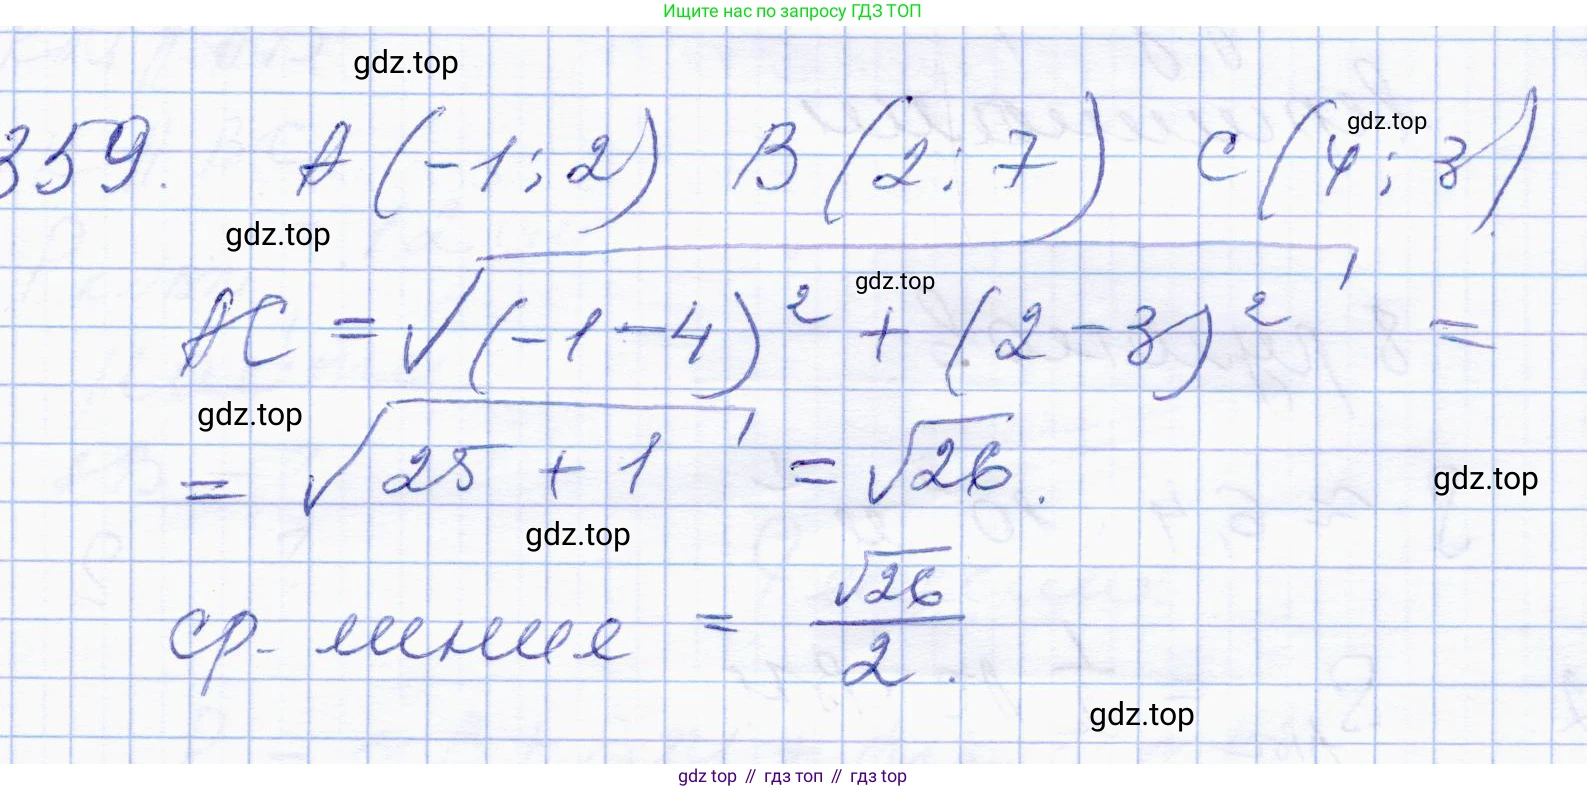 Ищите нас по запросу ГДЗ ТОП
gdz.top
359. A(-1; 2) B(2; 7) C(4; 3)
gdz.top
gdz.top
gdz.top
AC = √((-1-4)² + (2-3)²) =
gdz.top
= √(25 + 1) = √26.
gdz.top
gdz.top
ср. линия = √26/2.
gdz.top
gdz top // гдз топ // gdz top